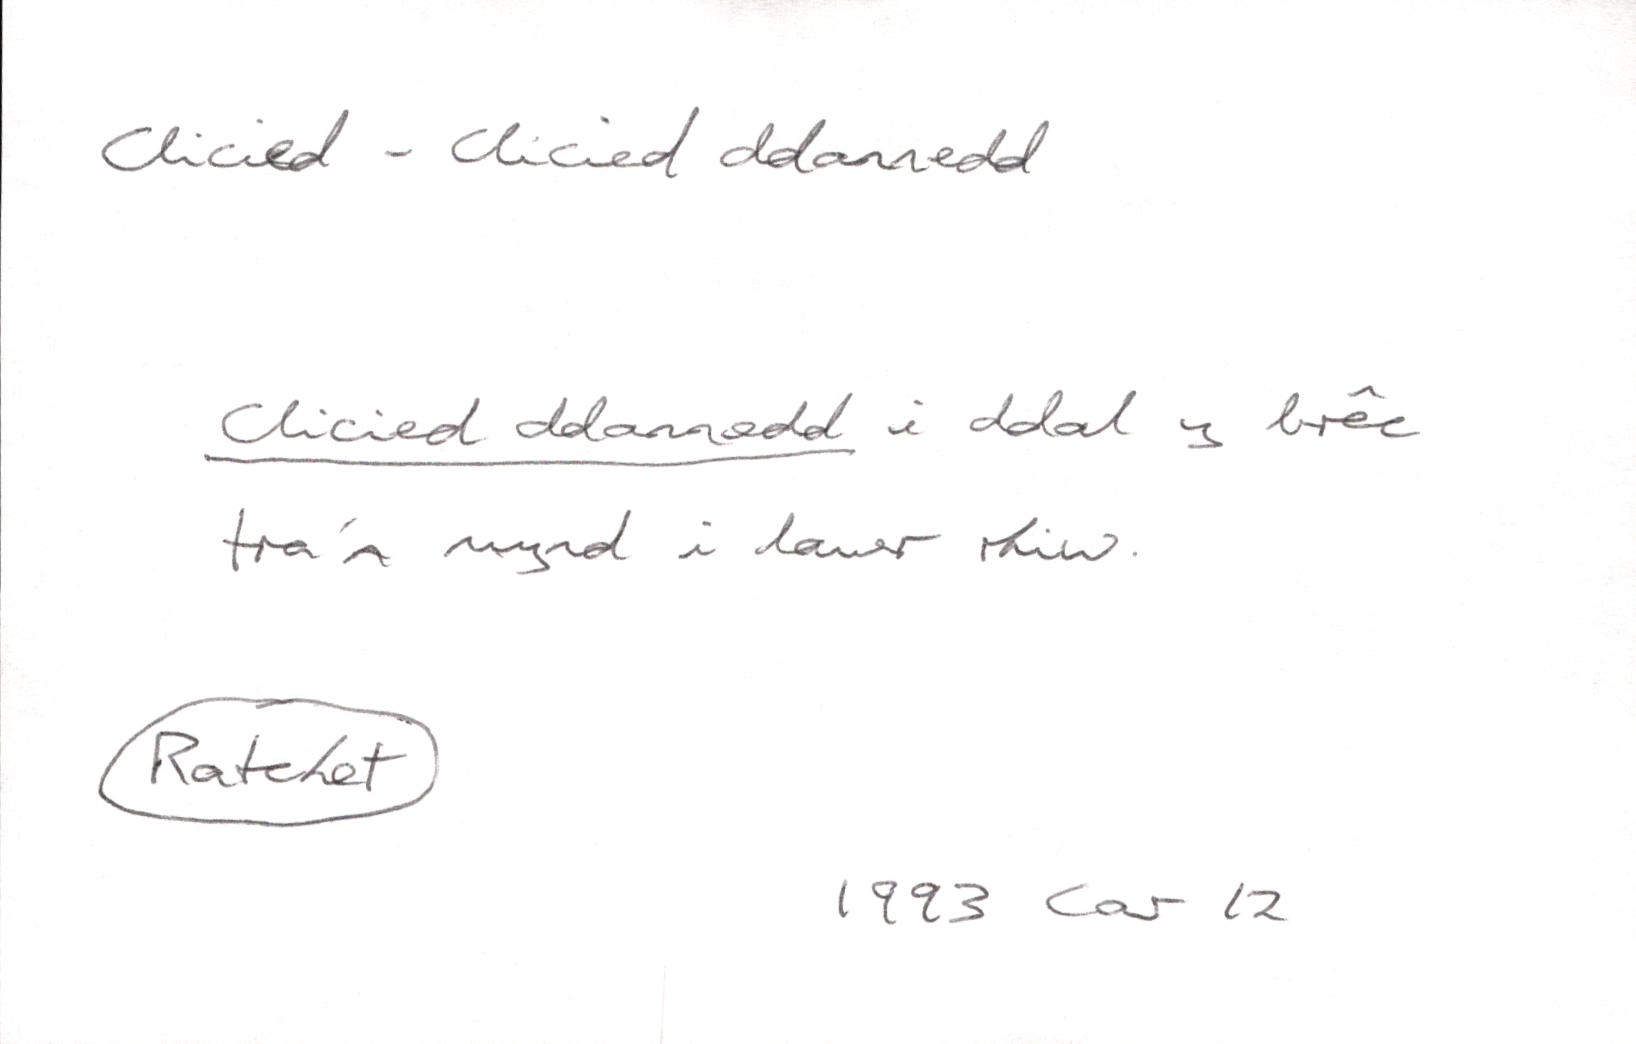 Clicied - Clicied ddannedd
Clicied ddannedd i ddal y brêc
tra'n mynd i lawr rhiw.
Ratchet
1993 Car 12